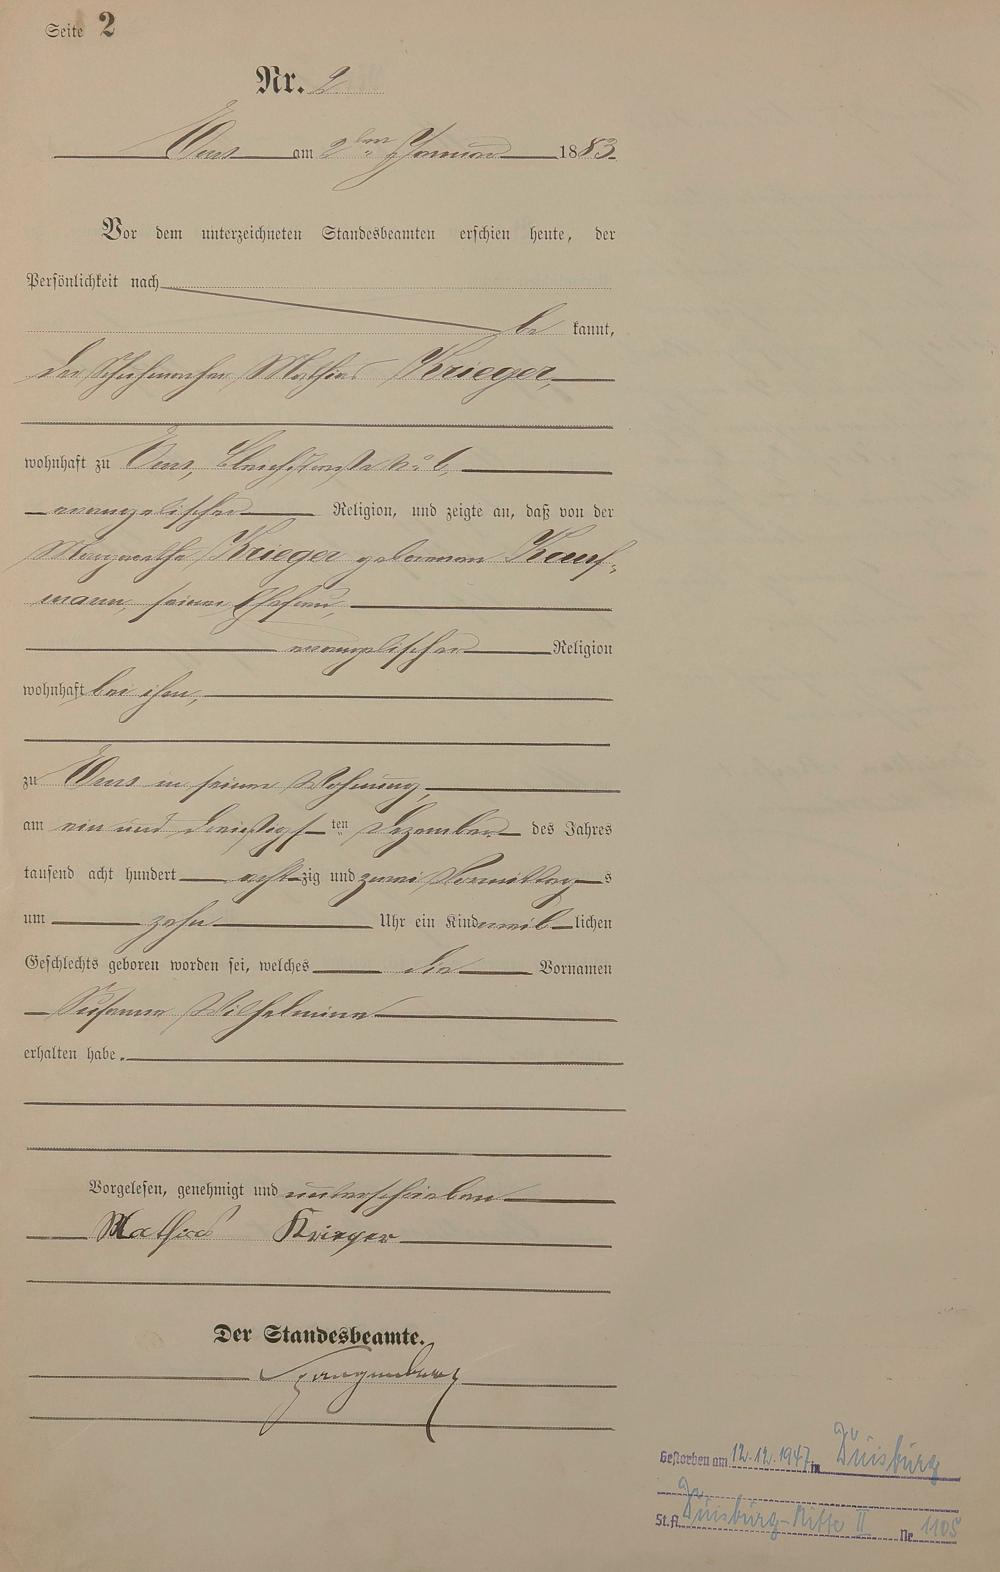 Seite 2
Nr. 2
Ems am 2ten Januar 1883.
Vor dem unterzeichneten Standesbeamten erschien heute, der
Persönlichkeit nach
be kannt,
der Schuhmacher Mathias Krieger,
wohnhaft zu Ems, Bleichstraße No 6,
evangelischer Religion, und zeigte an, daß von der
Margarethe Krieger geborenen Kauf-
mann, seiner Ehefrau,
evangelischer Religion
wohnhaft bei ihm,
zu Ems in seiner Wohnung,
am ein und dreißigs ten Dezember des Jahres
tausend acht hundert acht zig und zwei Vormittag s
um zehn Uhr ein Kind weib lichen
Geschlechts geboren worden sei, welches die Vornamen
Susanna Wilhelmine
erhalten habe.
Vorgelesen, genehmigt und unterschrieben
Mathias Krieger
Der Standesbeamte.
Gestorben am 12.12.1947 in Duisburg
St.A. Duisburg-Mitte II Nr. 1105